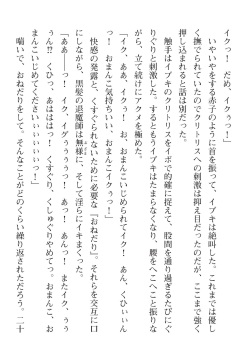 イクっ！　だめ、イクぅっ！」
　いやいやをする赤子のように首を振って、イブキは絶叫した。これまでは優し
く撫でられていたのでクリトリスへの刺激は抑え目だったのだが、ここまで強く
押し込まれると話は別だった。
　触手はイブキのクリトリスをイボで的確に捉えて、股間を通り過ぎるたびにぐ
りぐりと刺激した。するともうイブキはたまらなくなり、腰をへこへこと振りな
がら、立て続けにアクメを極めた。
「イク、ああ、イクぅ！　お、おまんこいじめられてイク！　あん、くひぃぃん
っ！　おまんこ気持ちいい、おまんこ、イクぅっ！」
　快感の発露と、くすぐられないために必要な『おねだり』。それらを交互に口
にしながら、黒髪の退魔師は無様に、そして淫らにイキまくった。
「ああ――っ！　イク、イグぅぅぅぅぅ！　あっ！　あんっ！　またイク、ぅぅ
ぅん!?　くひっ、あはははっ！　くすぐり、くしゅぐりやめてっ。おまんこ、お
まんこいじめてくださいぃぃぃぃぃっ！」
　喘いで、おねだりをして。そんなことがどのくらい繰り返されただろう。二十